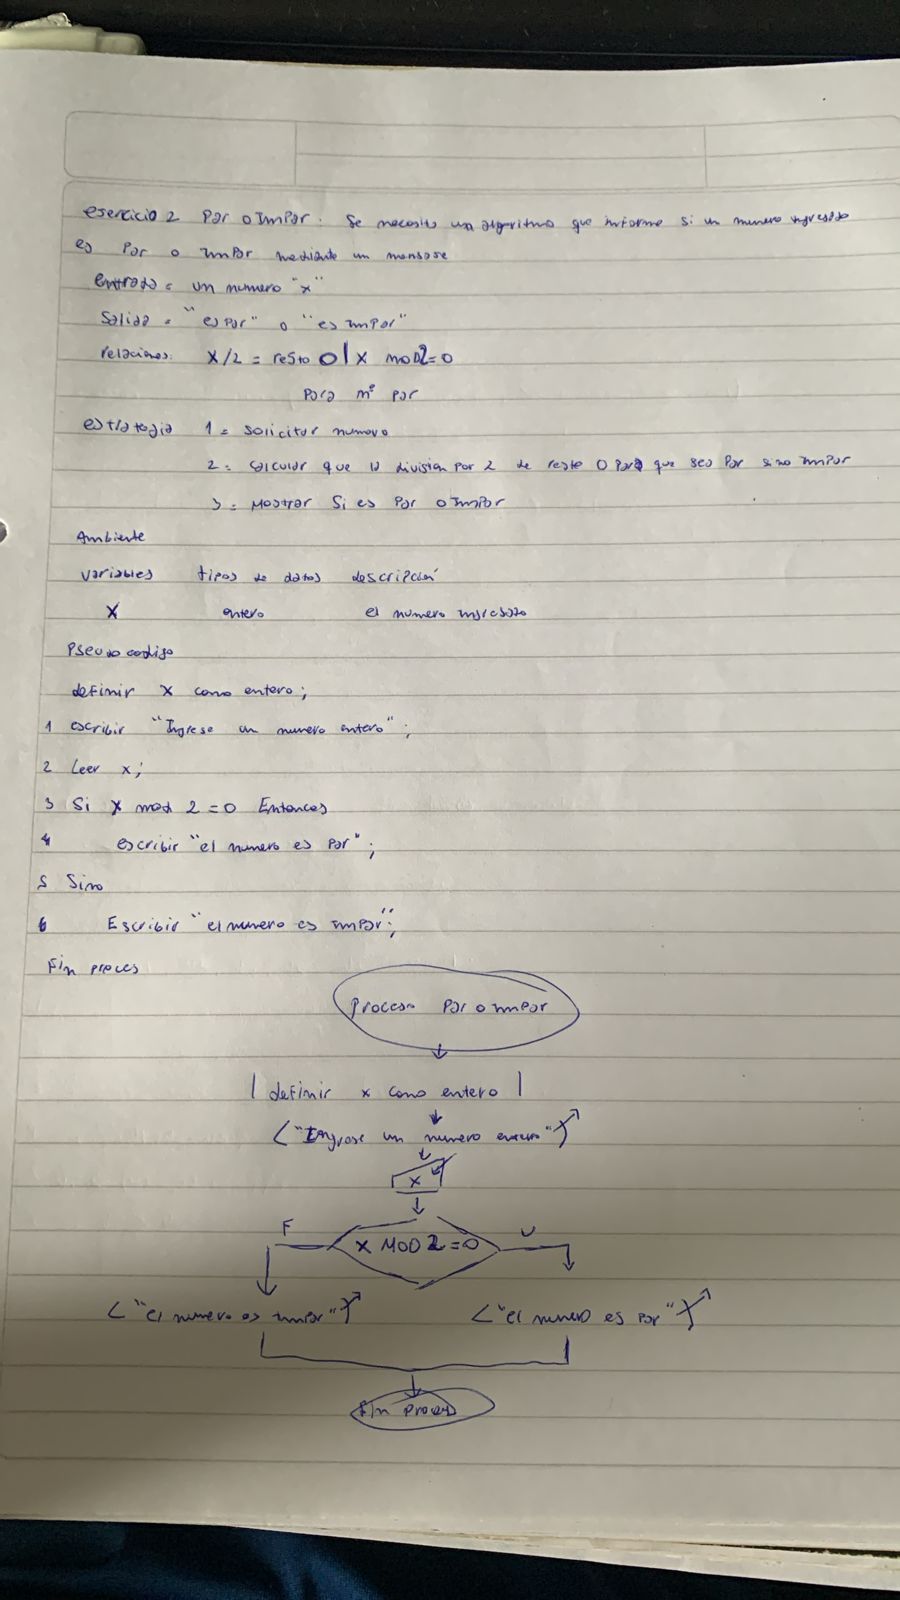 esercicio 2 Par o Impar. Se necesita un algoritmo que informe si un numero ingresado
es Par o ImPar mediante un mensase
entrada = un numero "x"
Salida = "es Par" o "es ImPar"
relaciones: x/2 = resto 0 | x MOD 2=0
Para nº par
estrategia 1 = solicitar numero
2 = calcular que la division por 2 de resto 0 para que sea Par sino ImPar
3 = Mostrar Si es Par o ImPar
Ambiente
variables tipos de datos descripción
X entero el numero ingresado
Pseudo codigo
definir x como entero;
1 escribir "Ingrese un numero entero";
2 Leer x;
3 Si x mod 2 = 0 Entonces
4 escribir "el numero es Par";
5 Sino
6 Escribir "el numero es ImPar";
Fin proces
Proceso Par o ImPar
definir x como entero
"Ingrese un numero entero"
x
F x MOD 2 = 0 V
"el numero es ImPar" "el numero es Par"
Fin proces